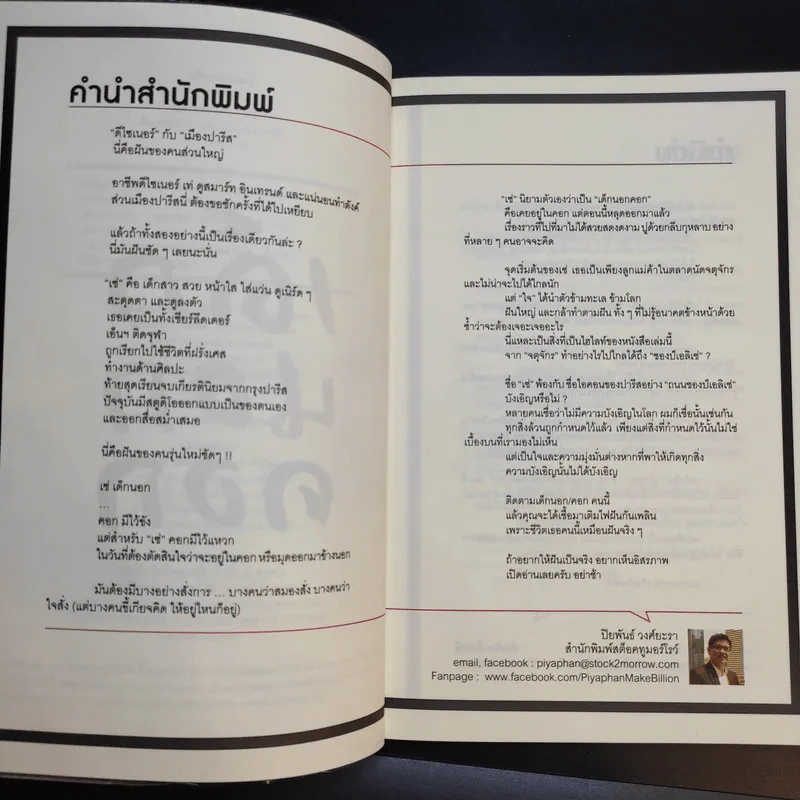 คำนำสำนักพิมพ์
"ดีไซเนอร์" กับ "เมืองปารีส"
นี่คือฝันของคนส่วนใหญ่
อาชีพดีไซเนอร์ เท่ ดูสมาร์ท อินเทรนด์ และแน่นอนทำตังค์
ส่วนเมืองปารีสนี่ ต้องขอซักครั้งที่ได้ไปเหยียบ
แล้วถ้าทั้งสองอย่างนี้เป็นเรื่องเดียวกันล่ะ ?
นี่มันฝันชัด ๆ เลยนะนั่น
"เซ่" คือ เด็กสาว สวย หน้าใส ใส่แว่น ดูเนิร์ด ๆ
สะดุดตา และดูลงตัว
เธอเคยเป็นทั้งเชียร์ลีดเดอร์
เอ็นฯ ติดจุฬา
ถูกเรียกไปใช้ชีวิตที่ฝรั่งเศส
ทำงานด้านศิลปะ
ท้ายสุดเรียนจบเกียรตินิยมจากกรุงปารีส
ปัจจุบันมีสตูดิโอออกแบบเป็นของตนเอง
และออกสื่อสม่ำเสมอ
นี่คือฝันของคนรุ่นใหม่ชัดๆ !!
เซ่ เด็กนอก
...
คอก มีไว้ขัง
แต่สำหรับ "เซ่" คอกมีไว้แหวก
ในวันที่ต้องตัดสินใจว่าจะอยู่ในคอก หรือมุดออกมาข้างนอก
มันต้องมีบางอย่างสั่งการ ... บางคนว่าสมองสั่ง บางคนว่า
ใจสั่ง (แต่บางคนขี้เกียจคิด ให้อยู่ไหนก็อยู่)
"เซ่" นิยามตัวเองว่าเป็น "เด็กนอกคอก"
คือเคยอยู่ในคอก แต่ตอนนี้หลุดออกมาแล้ว
เรื่องราวที่ไปที่มาไม่ได้สวยสดงดงาม ปูด้วยกลีบกุหลาบ อย่าง
ที่หลาย ๆ คนอาจจะคิด
จุดเริ่มต้นของเซ่ เธอเป็นเพียงลูกแม่ค้าในตลาดนัดจตุจักร
และไม่น่าจะไปได้ไกลนัก
แต่ "ใจ" ได้นำตัวข้ามทะเล ข้ามโลก
ฝันใหญ่ และกล้าทำตามฝัน ทั้ง ๆ ที่ไม่รู้อนาคตข้างหน้าด้วย
ซ้ำว่าจะต้องเจอะเจออะไร
นี่แหละเป็นสิ่งที่เป็นไฮไลท์ของหนังสือเล่มนี้
จาก "จตุจักร" ทำอย่างไรไปไกลได้ถึง "ชองป์เอลิเซ่" ?
ชื่อ "เซ่" พ้องกับ ชื่อไอคอนของปารีสอย่าง "ถนนชองป์เอลิเซ่"
บังเอิญหรือไม่ ?
หลายคนเชื่อว่าไม่มีความบังเอิญในโลก ผมก็เชื่อนั้นเช่นกัน
ทุกสิ่งล้วนถูกกำหนดไว้แล้ว เพียงแต่สิ่งที่กำหนดไว้นั้นไม่ใช่
เบื้องบนที่เรามองไม่เห็น
แต่เป็นใจและความมุ่งมั่นต่างหากที่พาให้เกิดทุกสิ่ง
ความบังเอิญนั้นไม่ได้บังเอิญ
ติดตามเด็กนอก/คอก คนนี้
แล้วคุณจะได้เชื้อมาเติมไฟฝันกันเพลิน
เพราะชีวิตเธอคนนี้เหมือนฝันจริง ๆ
ถ้าอยากให้ฝันเป็นจริง อยากเห็นอิสรภาพ
เปิดอ่านเลยครับ อย่าช้า
ปิยพันธ์ วงศ์ยะรา
สำนักพิมพ์สต็อคทูมอร์โรว์
email, facebook : piyaphan@stock2morrow.com
Fanpage : www.facebook.com/PiyaphanMakeBillion